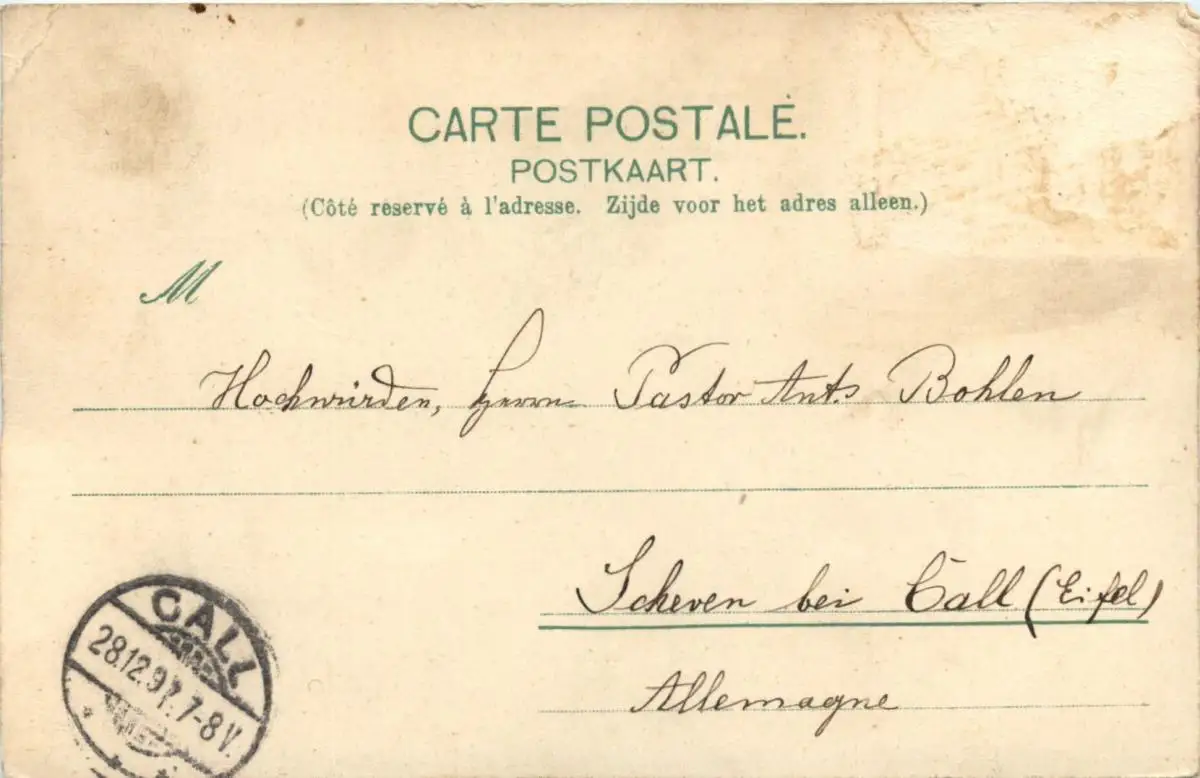 CARTE POSTALE.
POSTKAART.
(Côté reservé à l'adresse. Zijde voor het adres alleen.)
M
Hochwürden, Herrn Pastor Ant. Bohlen
Scheven bei Call (Eifel)
Allemagne
CALL
28.12.97. 7-8 V.